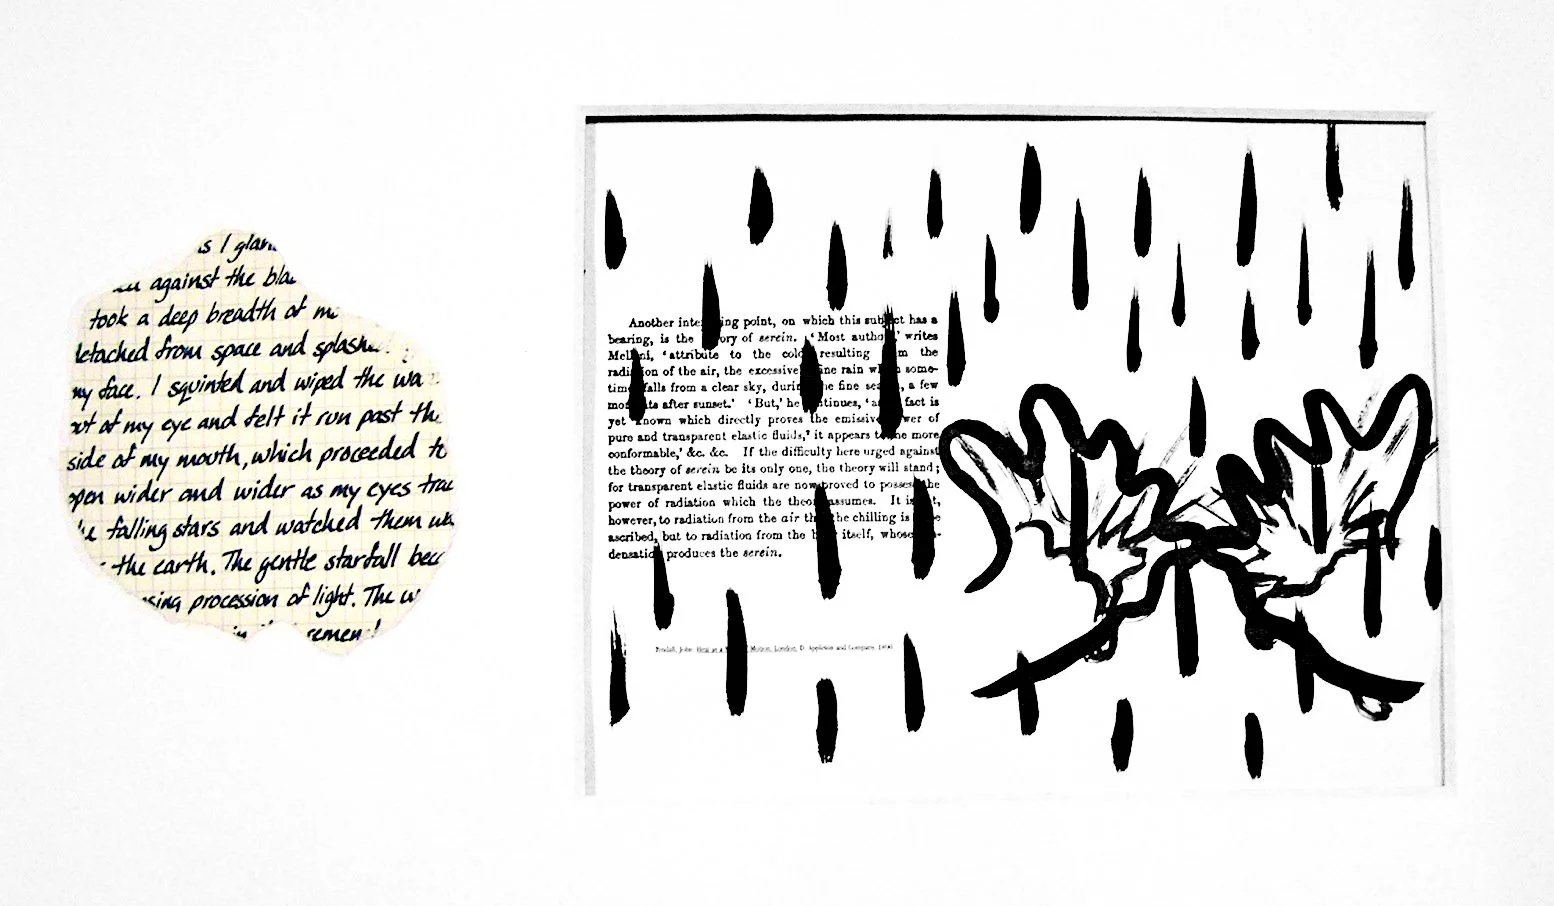 s I glan
against the bla
took a deep breadth of m
letached from space and splash
my face. I squinted and wiped the wa
out of my eye and felt it run past the
side of my mouth, which proceeded to
open wider and wider as my eyes trac
falling stars and watched them wa
the earth. The gentle starfall bec
sing procession of light. The w
in remem
Another inte ing point, on which this subject has a
bearing, is the ory of serein. 'Most autho ' writes
Mel ni, 'attribute to the cold resulting m the
radi ion of the air, the excessive ine rain w h some-
time falls from a clear sky, durin he fine sea , a few
mo ts after sunset.' 'But,' he ntinues, 'a fact is
yet known which directly proves the emissive wer of
pure and transparent elastic fluids,' it appears to me more
conformable,' &c. &c. If the difficulty here urged against
the theory of serein be its only one, the theory will stand;
for transparent elastic fluids are now proved to possess the
power of radiation which the theo assumes. It is t,
however, to radiation from the air th the chilling is e
ascribed, but to radiation from the b itself, whose n-
densatio produces the serein.
Tyndall, John. Heat as a Motion. London, D. Appleton and Company,